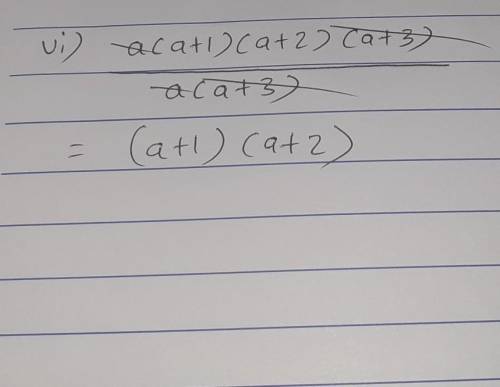 vi) a(a+1)(a+2)(a+3)
a(a+3)
= (a+1) (a+2)